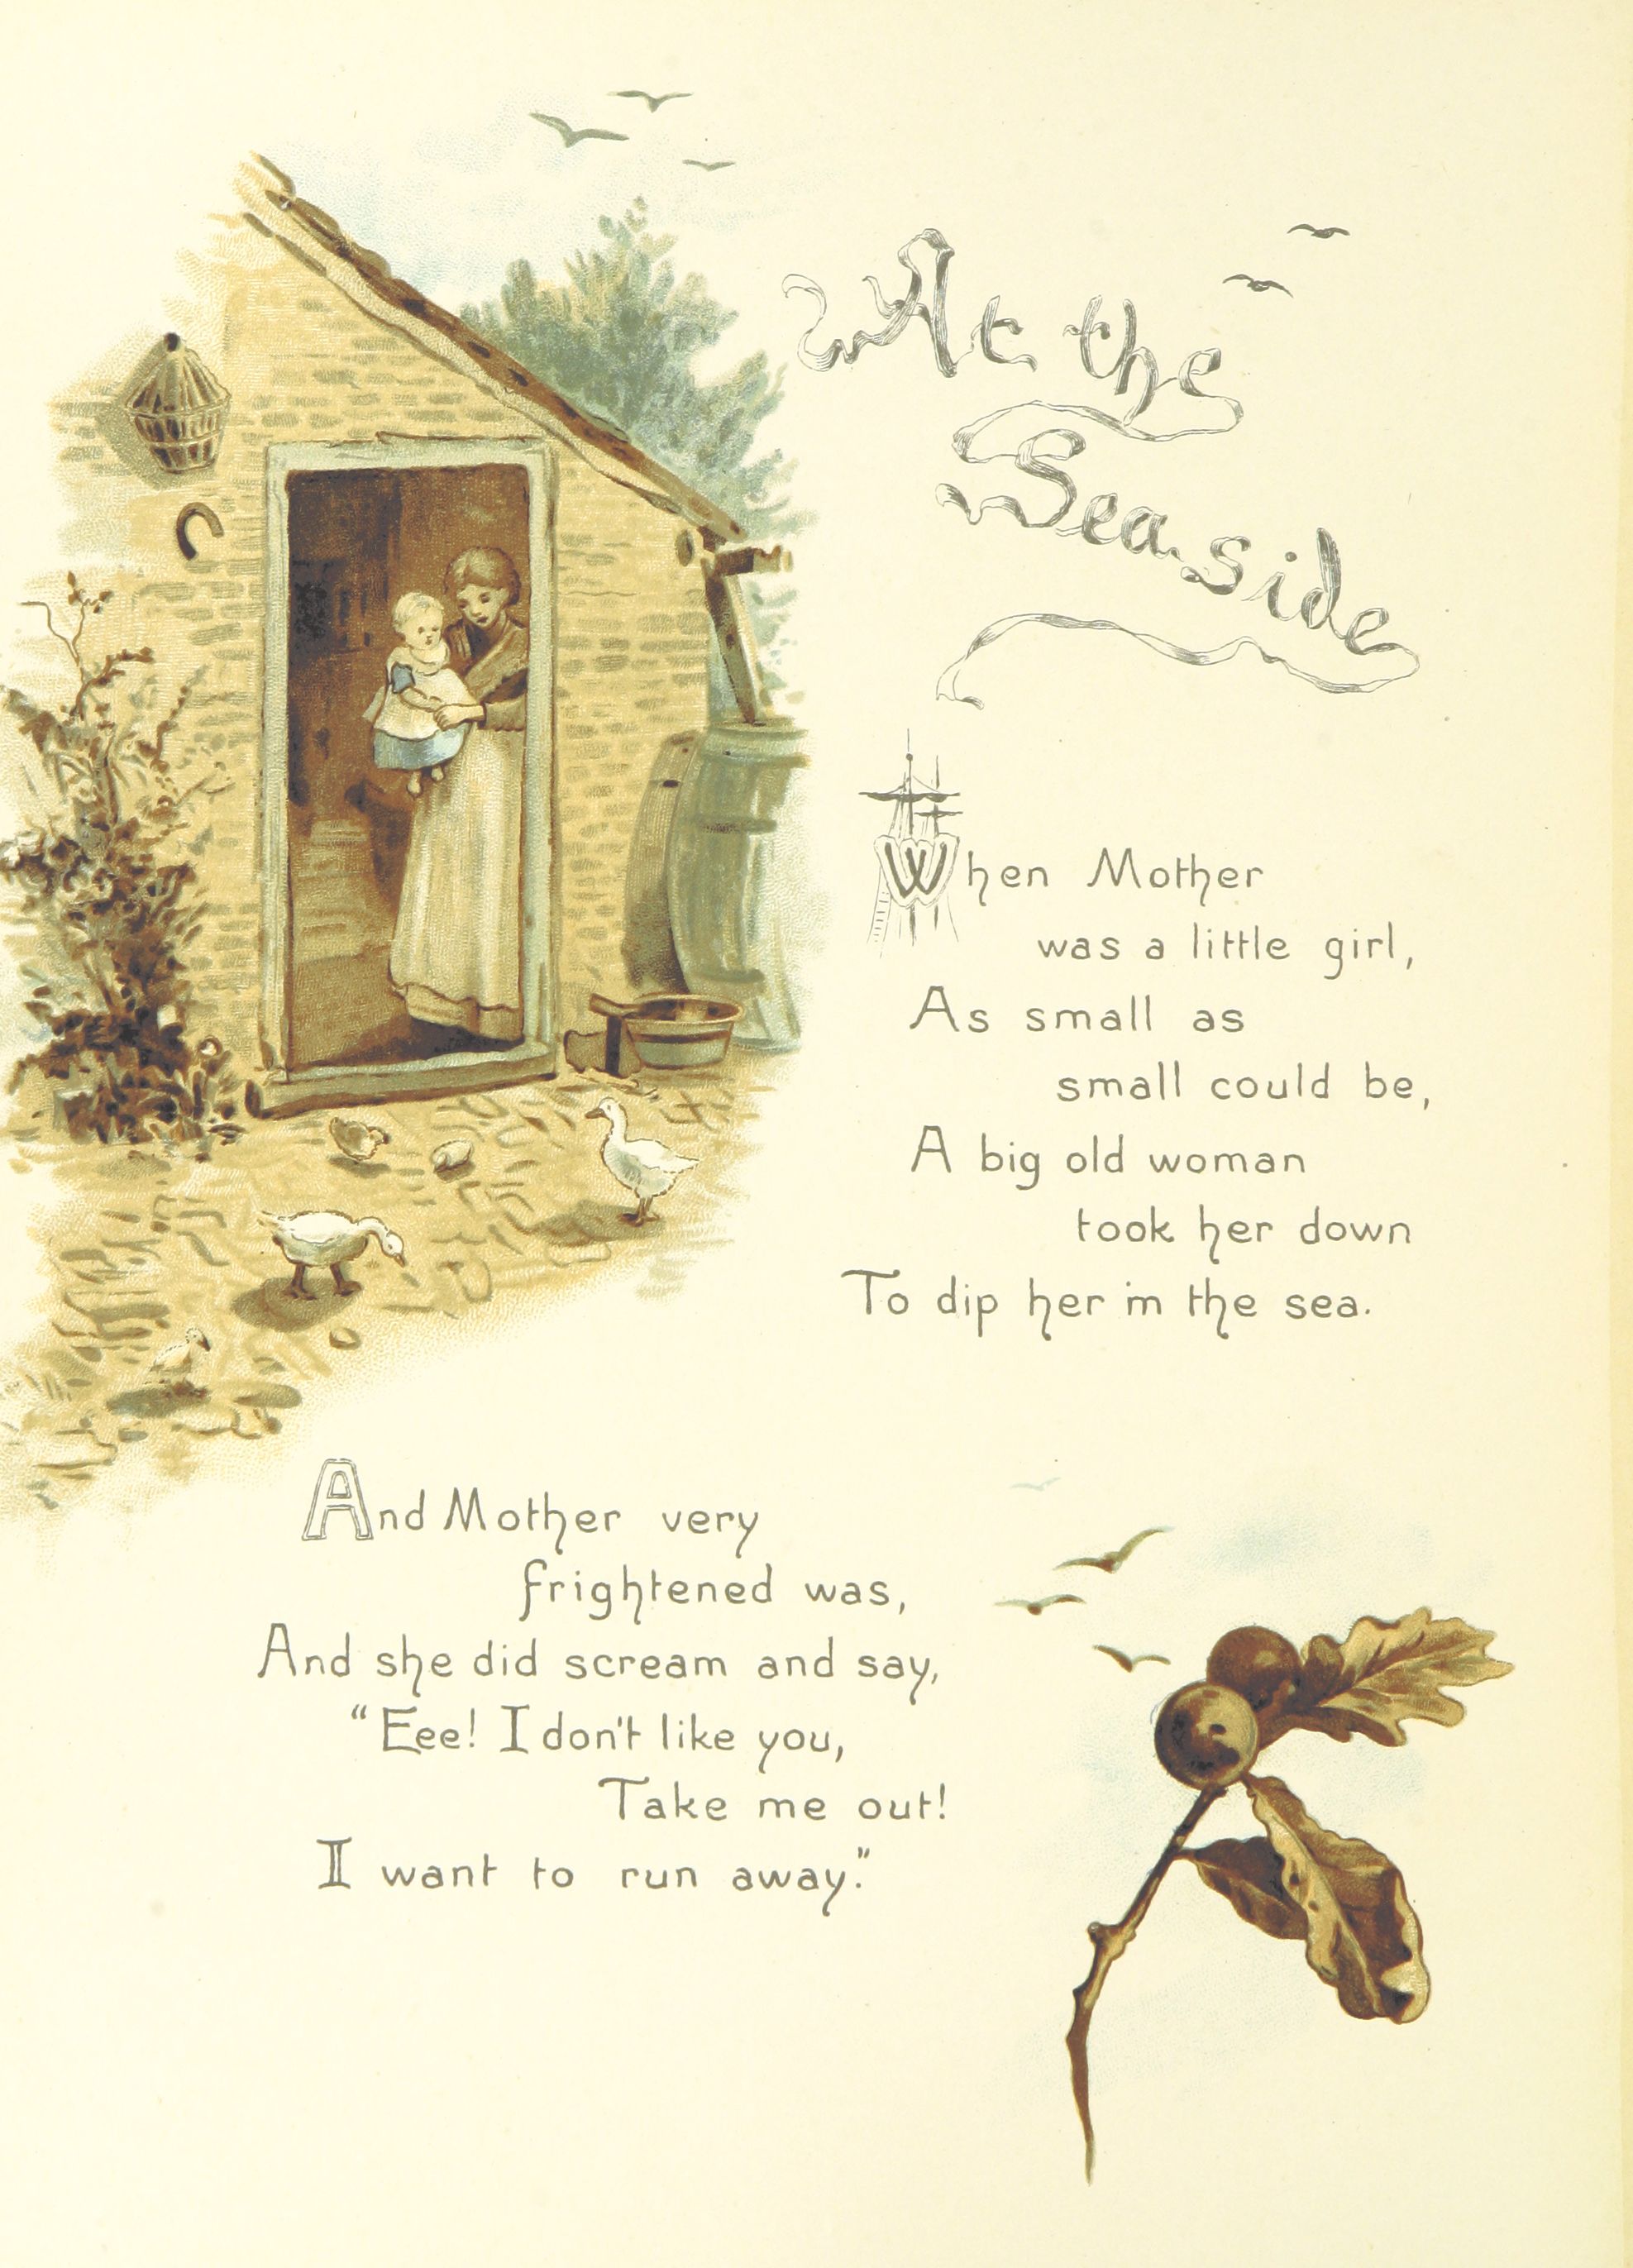 At the
Seaside
When Mother
was a little girl,
As small as
small could be,
A big old woman
took her down
To dip her in the sea.
And Mother very
frightened was,
And she did scream and say,
“Eee! I don't like you,
Take me out!
I want to run away.”